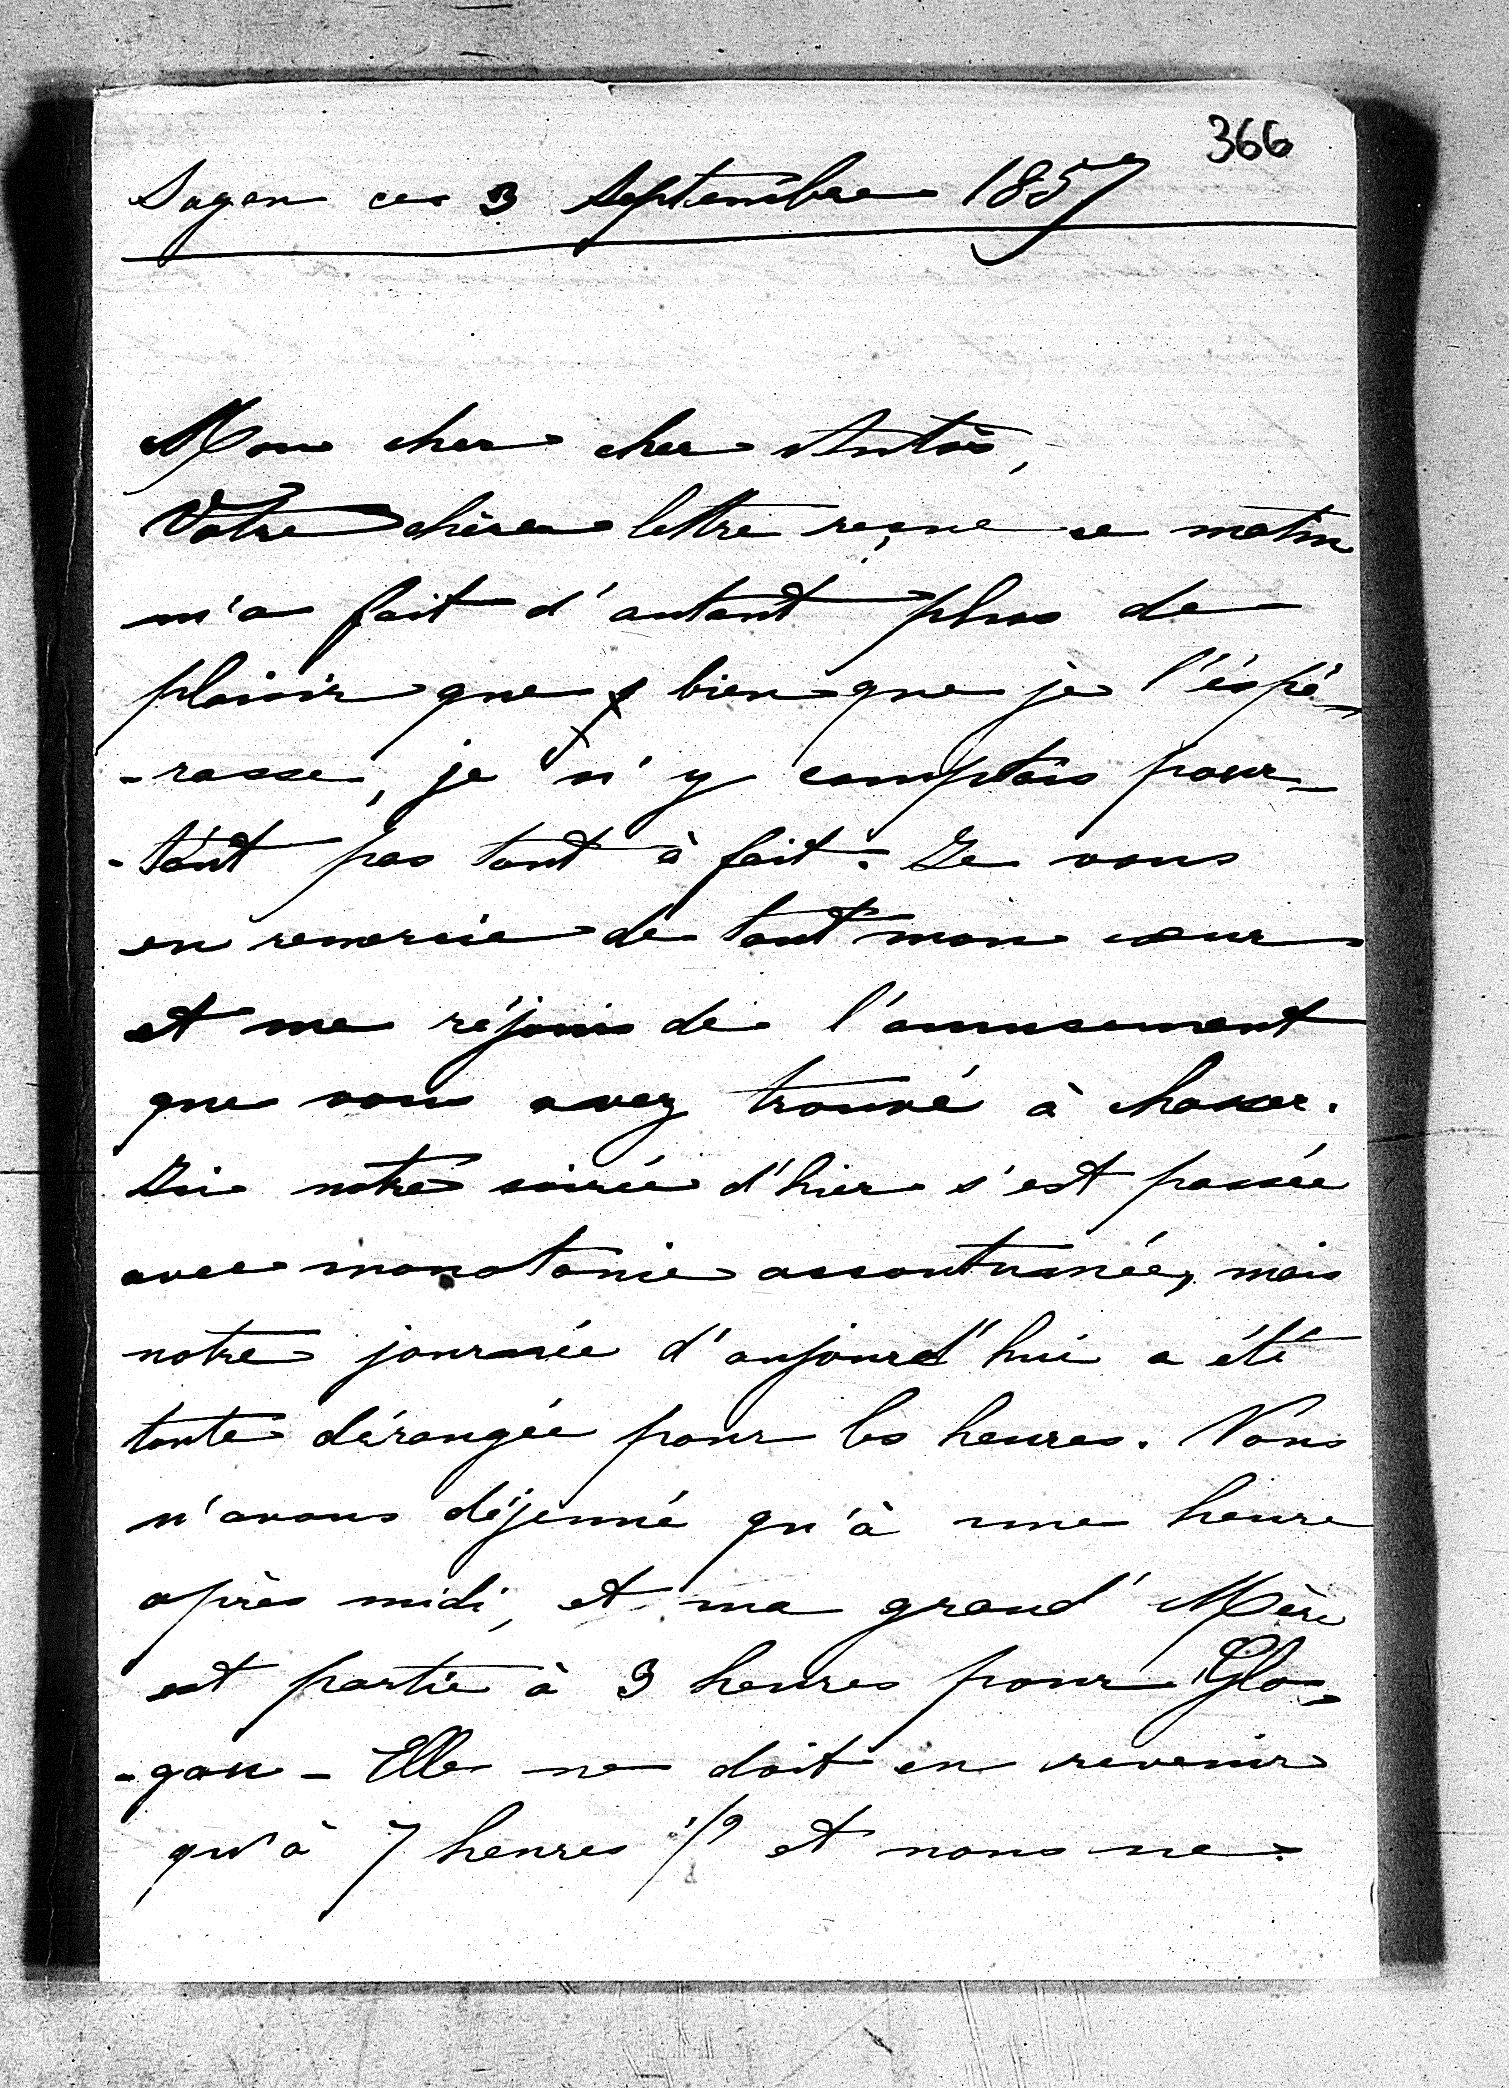 366
Sagan ce 3 Septembre 1857
Mon cher cher Antoi,
Votre chère lettre reçue ce matin
m'a fait d'autant plus de
plaisir que bien que je l'éspé-
-rasse, je n'y comptais pour-
-tant pas tout à fait. Je vous
en remercie de tout mon cœur
et me réjouis de l'amusement
que vous avez trouvé à chasser.
Ici notre soirée d'hier s'est passée
avec monotonie accoutumée, mais
notre journée d'aujourd'hui a été
toute dérangée pour les heures. Nous
n'avons déjeuné qu'à une heure
après midi, et ma grand' Mère
est partie à 3 heures pour Glo-
-gau - Elle ne doit en revenir
qu'à 7 heures 1/2 et nous ne